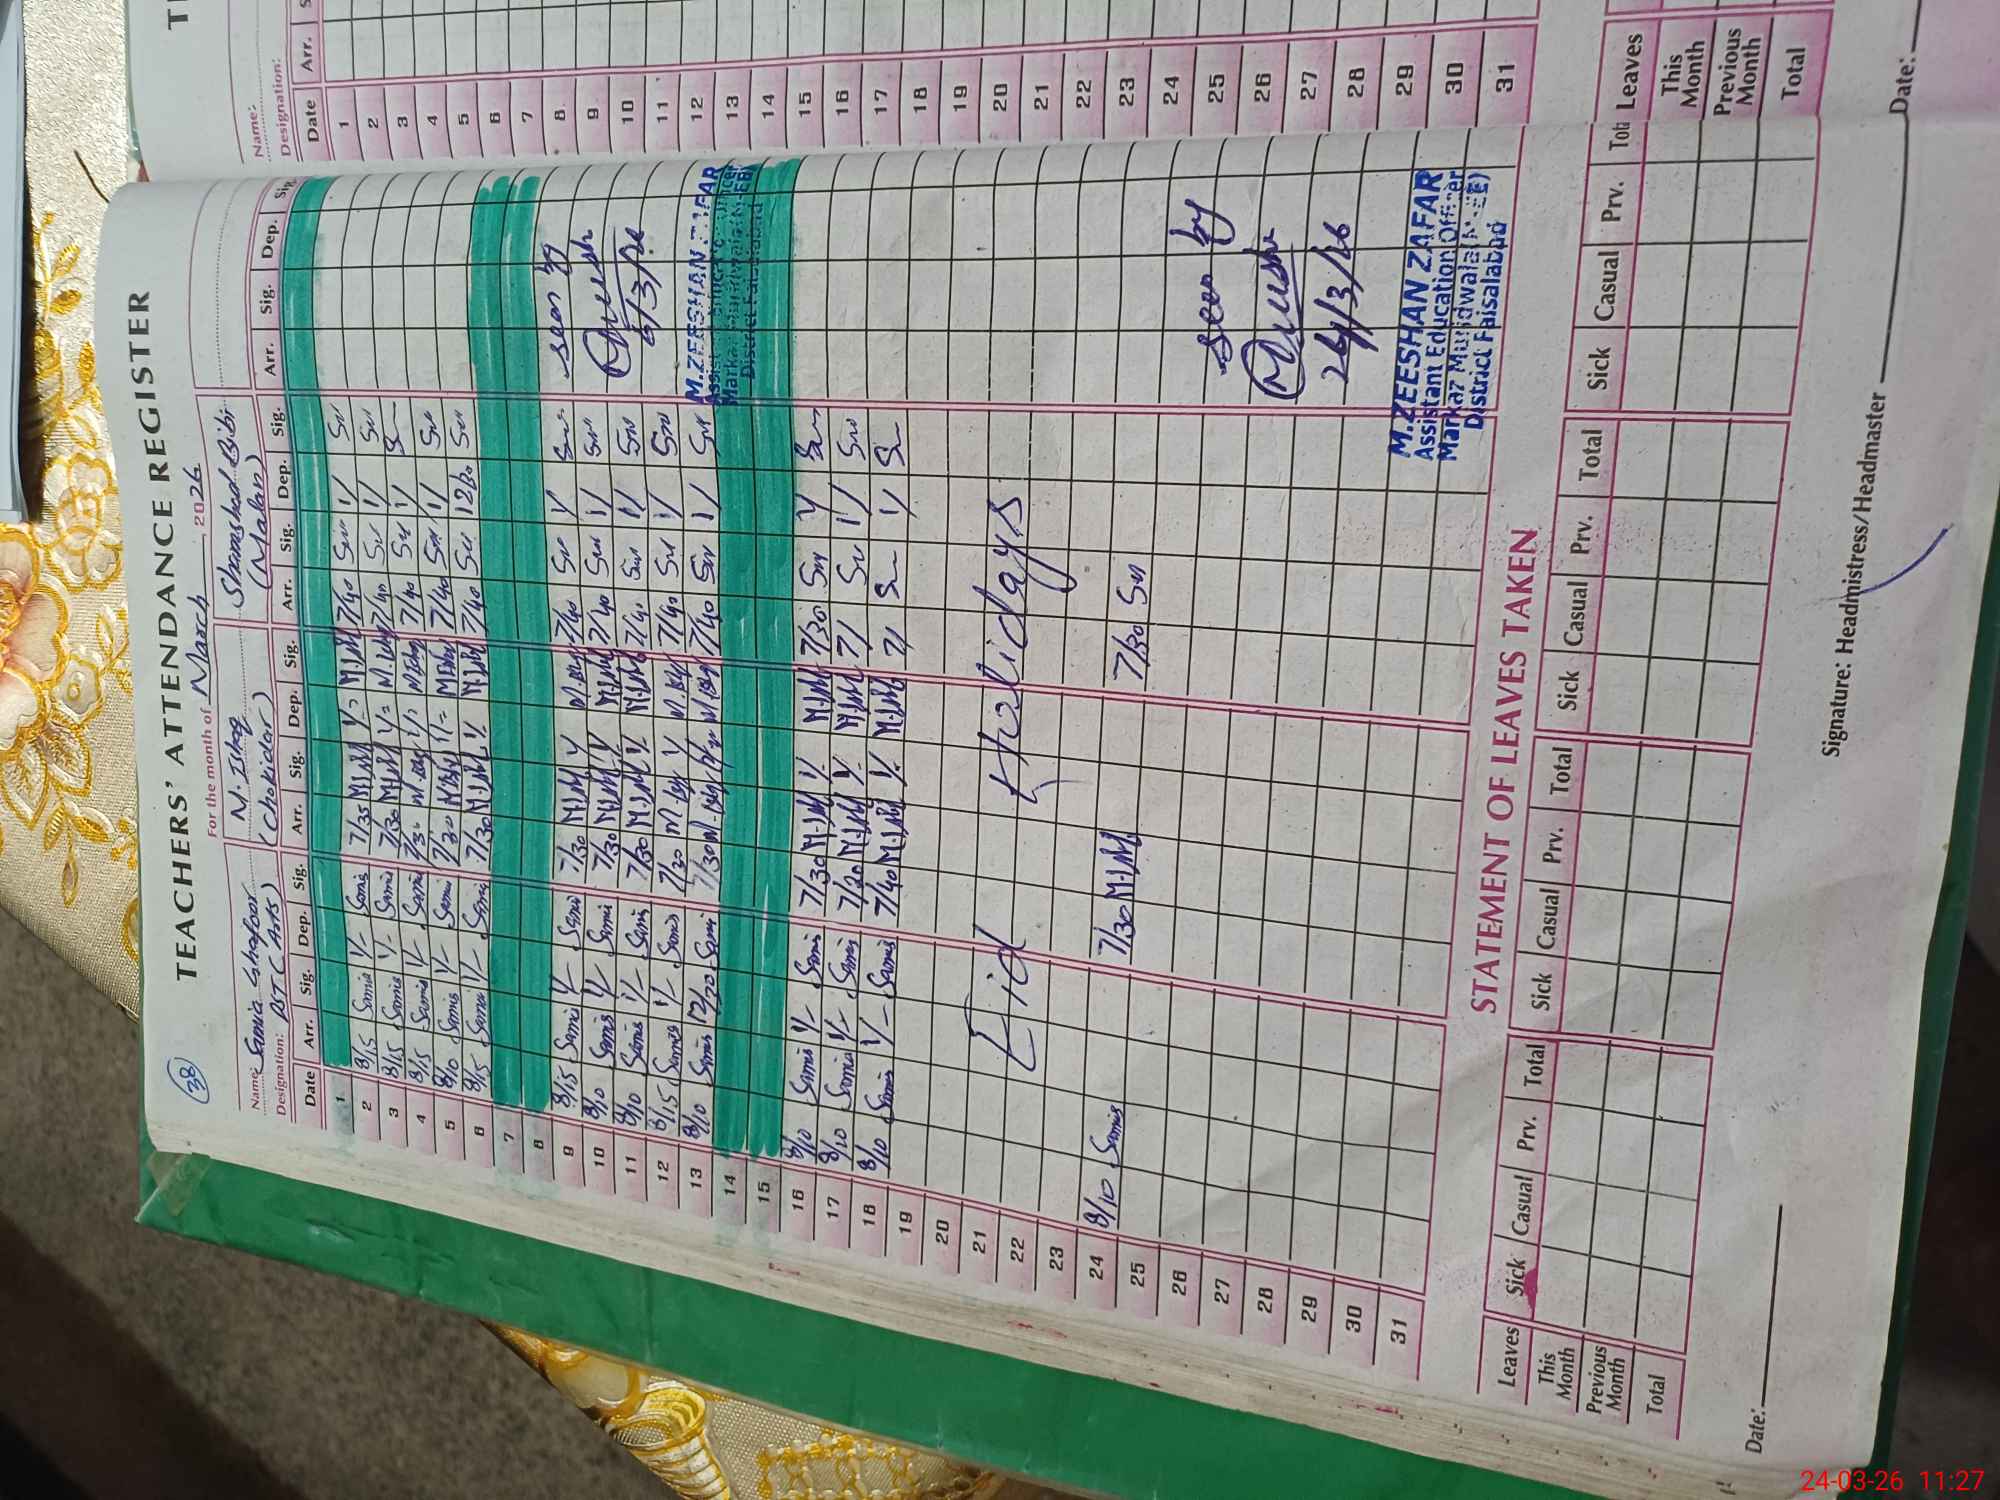 38
TEACHERS' ATTENDANCE REGISTER
For the month of March 2026
Name: Sania Ghafoor M. Ishaq Shamshad Bibi
Designation: PST (Arts) (Chokidar) (Malan)
Date Arr. Sig. Dep. Sig. Arr. Sig. Dep. Sig. Arr. Sig. Dep. Sig. Arr. Sig. Dep. Sig.
1
2 8/15 Samia 1/- Samia 7/35 7/40 1/
3 8/15 Samia 1/- Samia 7/30 7/40 1/
4 8/15 Samia 1/- Samia 7/30 7/40 1/
5 8/10 Samia 1/- Samia 7/30 7/40 1/
6 8/15 Samia 1/- Samia 7/30 7/40 12/30
7
8
9 8/15 Samia 1/- Samia 7/30 7/40 1/ seen by
10 8/10 Samia 1/- Samia 7/30 7/40 1/
11 8/10 Samia 1/- Samia 7/30 7/40 1/
12 8/15 Samia 1/- Samia 7/30 7/40 1/
13 8/10 Samia 12/30 Samia 7/30 7/40 1/ M.ZEESHAN ZAFAR
14
15 District Faisalabad
16 8/10 Samia 1/- Samia 7/30 7/30
17 8/10 Samia 1/- Samia 7/20 7/ 1/
18 8/10 Samia 1/- Samia 7/40 7/ 1/
19
20
21
22 Eid Holidays
23
24 8/10 Samia 7/30 7/30
25
26 seen by
27
28
29 24/3/26
30
31 M.ZEESHAN ZAFAR
Assistant Education Officer
Markaz Muridwala
District Faisalabad
STATEMENT OF LEAVES TAKEN
Leaves Sick Casual Prv. Total Sick Casual Prv. Total Sick Casual Prv. Total Sick Casual Prv.
This Month
Previous Month
Total
Date: Signature: Headmistress/Headmaster
Name:
Designation:
Date Arr.
1
2
3
4
5
6
7
8
9
10
11
12
13
14
15
16
17
18
19
20
21
22
23
24
25
26
27
28
29
30
31
Leaves
This Month
Previous Month
Total
Date:
24-03-26 11:27